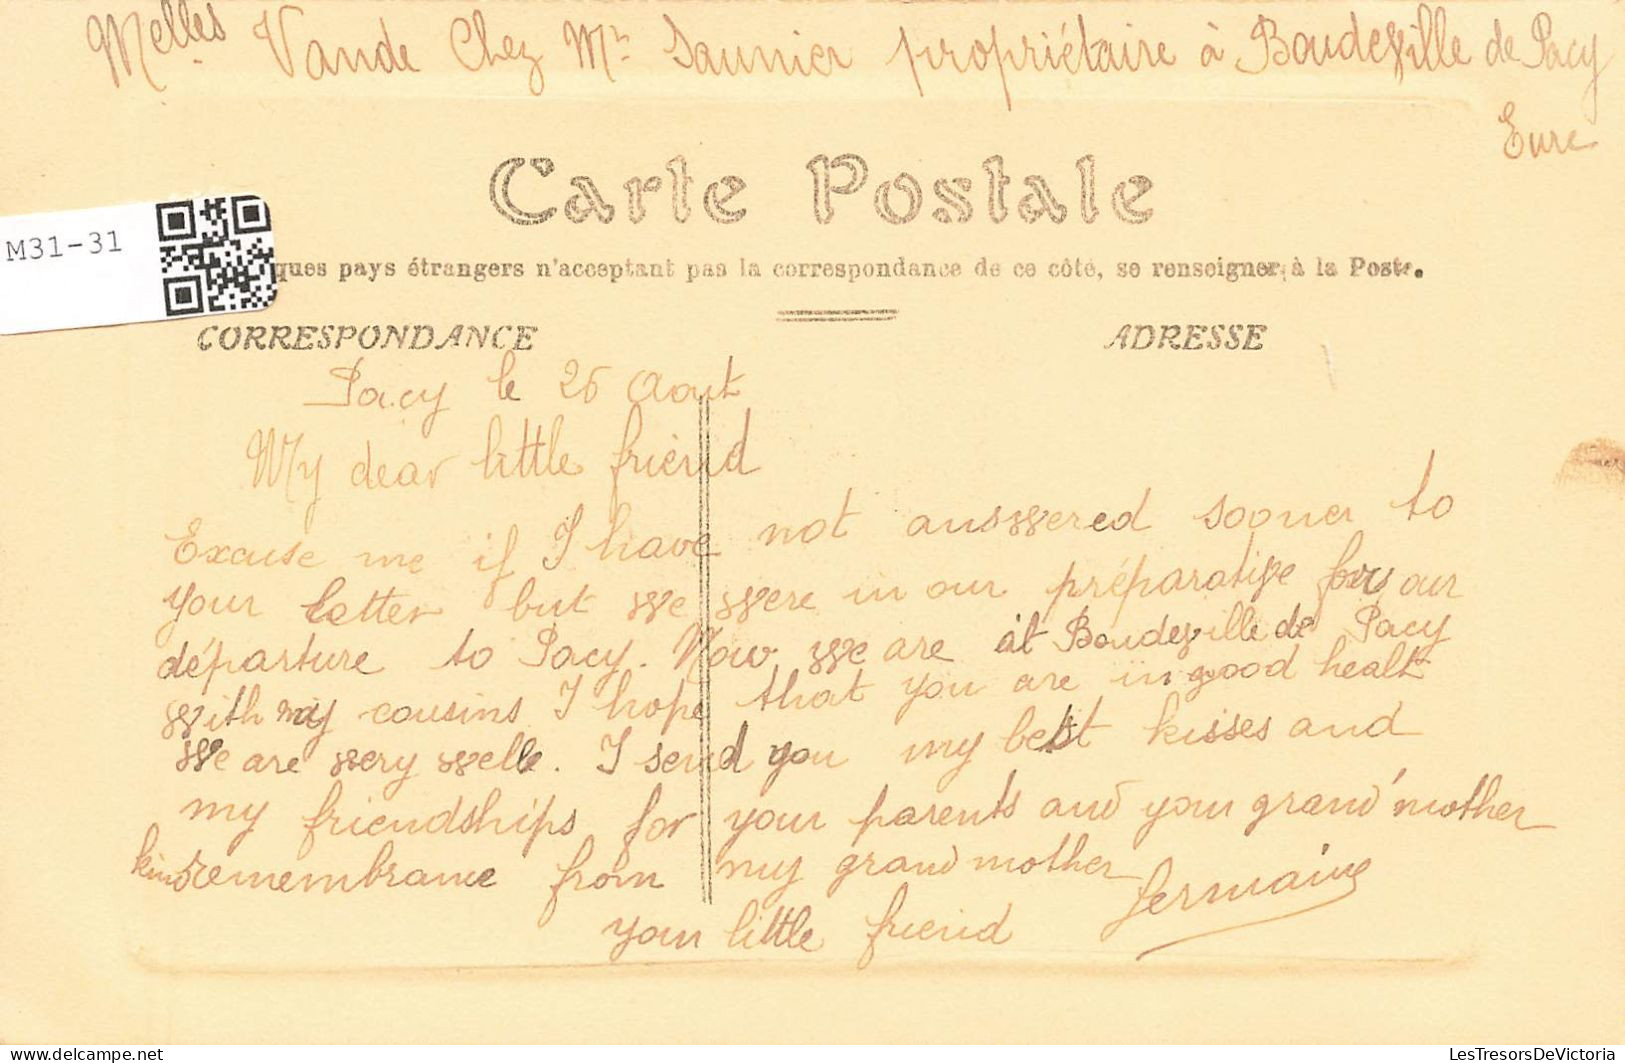 Melles Vande Chez Mr Saunier propriétaire à Boudeville de Pacy
Eure
Carte Postale
M31-31
ques pays étrangers n'acceptant pas la correspondance de ce côté, se renseigner à la Poste.
CORRESPONDANCE
ADRESSE
Pacy le 26 Aout
My dear little friend
Excuse me if I have not answered sooner to
your letter but we were in our préparative for our
départure to Pacy. Now we are at Boudeville de Pacy
with my cousins I hope that you are in good healt
We are very welle. I send you my best kisses and
my friendships for your parents and your grand'mother
kind remembrance from my grand mother
your little friend Germaine
LesTresorsDeVictoria